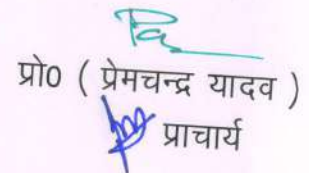 प्रो0 ( प्रेमचन्द्र यादव )
प्राचार्य